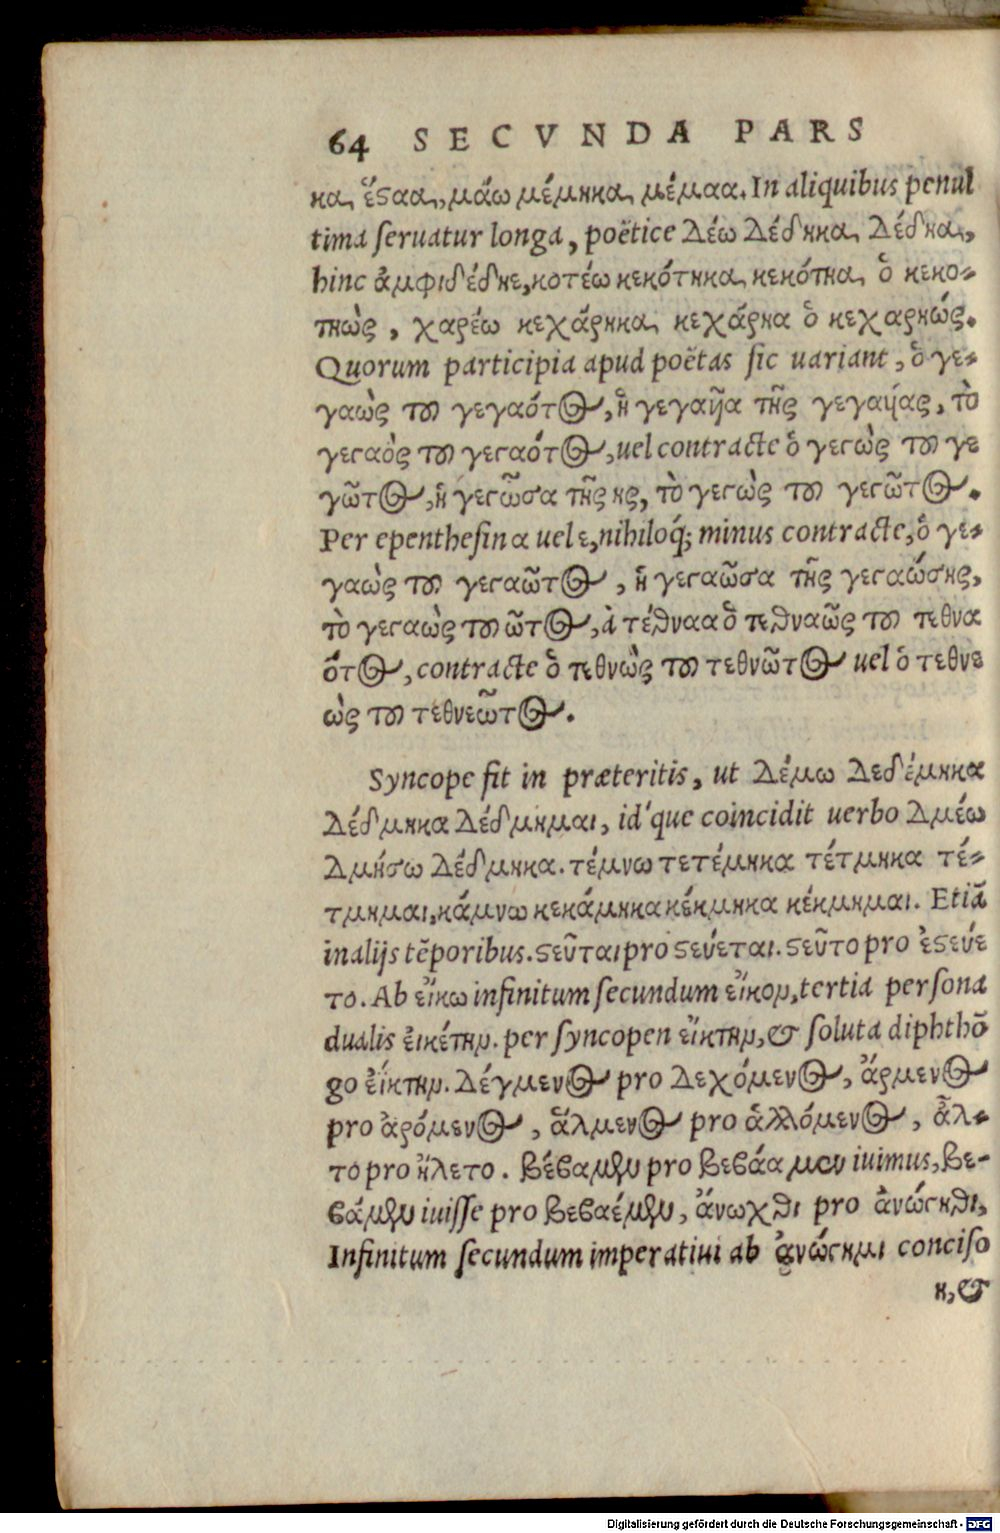 64 SECVNDA PARS
κα, ἕϛαα, μάω μέμηκα, μέμαα. In aliquibus penul
tima ſeruatur longa, poëtice Δέω Δέδηκα, Δέδηα,
hinc ἀμφιδέδηε, κοτέω κεκότηκα, κεκότηα, ὁ κεκο-
τηὼς, χαρέω κεχάρηκα, κεχάρηα ὁ κεχαρηώς.
Quorum participia apud poëtas ſic uariant, ὁ γε-
γαὼς τοῦ γεγαότος, ἡ γεγαῆα τῆς γεγαῄας, τὸ
γεγαὸς τοῦ γεγαότος, uel contracte ὁ γεγὼς τοῦ γε
γῶτος, ἡ γεγῶσα τῆς ης, τὸ γεγὼς τοῦ γεγῶτος.
Per epentheſin α uel ε, nihiloq́; minus contracte, ὁ γε-
γαὼς τοῦ γεγαῶτος, ἡ γεγαῶσα τῆς γεγαώσης,
τὸ γεγαὼς τοῦ ῶτος, à τέθναα ὁ τεθναῶς τοῦ τεθνα
ότος, contracte ὁ τεθνὼς τοῦ τεθνῶτος uel ὁ τεθνε
ὼς τοῦ τεθνεῶτος.
Syncope fit in præteritis, ut Δέμω Δεδέμηκα
Δέδμηκα Δέδμημαι, id́que coincidit uerbo Δμέω
Δμήσω Δέδμηκα. τέμνω τετέμηκα τέτμηκα τέ-
τμημαι, κάμνω κεκάμηκα κέκμηκα κέκμημαι. Etiã
in alijs tẽporibus. ϛεῦται pro ϛεύεται. ϛεῦτο pro ἐϛεύε
το. Ab εἴκω infinitum ſecundum εἴκον, tertia perſona
dualis εἰκέτην. per ſyncopen εἴκτην, & ſoluta diphthõ
go ἐΐκτην. Δέγμενος pro Δεχόμενος, ἄρμενος
pro ἀρόμενος, ἅλμενος pro ἁλλόμενος, ἆλ-
το pro ἥλετο. βέβαμεν pro βεβάαμεν iuimus, βε-
βάμεν iuiſſe pro βεβαέμεν, ἄνωχθι pro ἀνώγηθι,
Infinitum ſecundum imperatiui ab ἀνώγημι conciſo
η, &
Digitalisierung gefördert durch die Deutsche Forschungsgemeinschaft - DFG